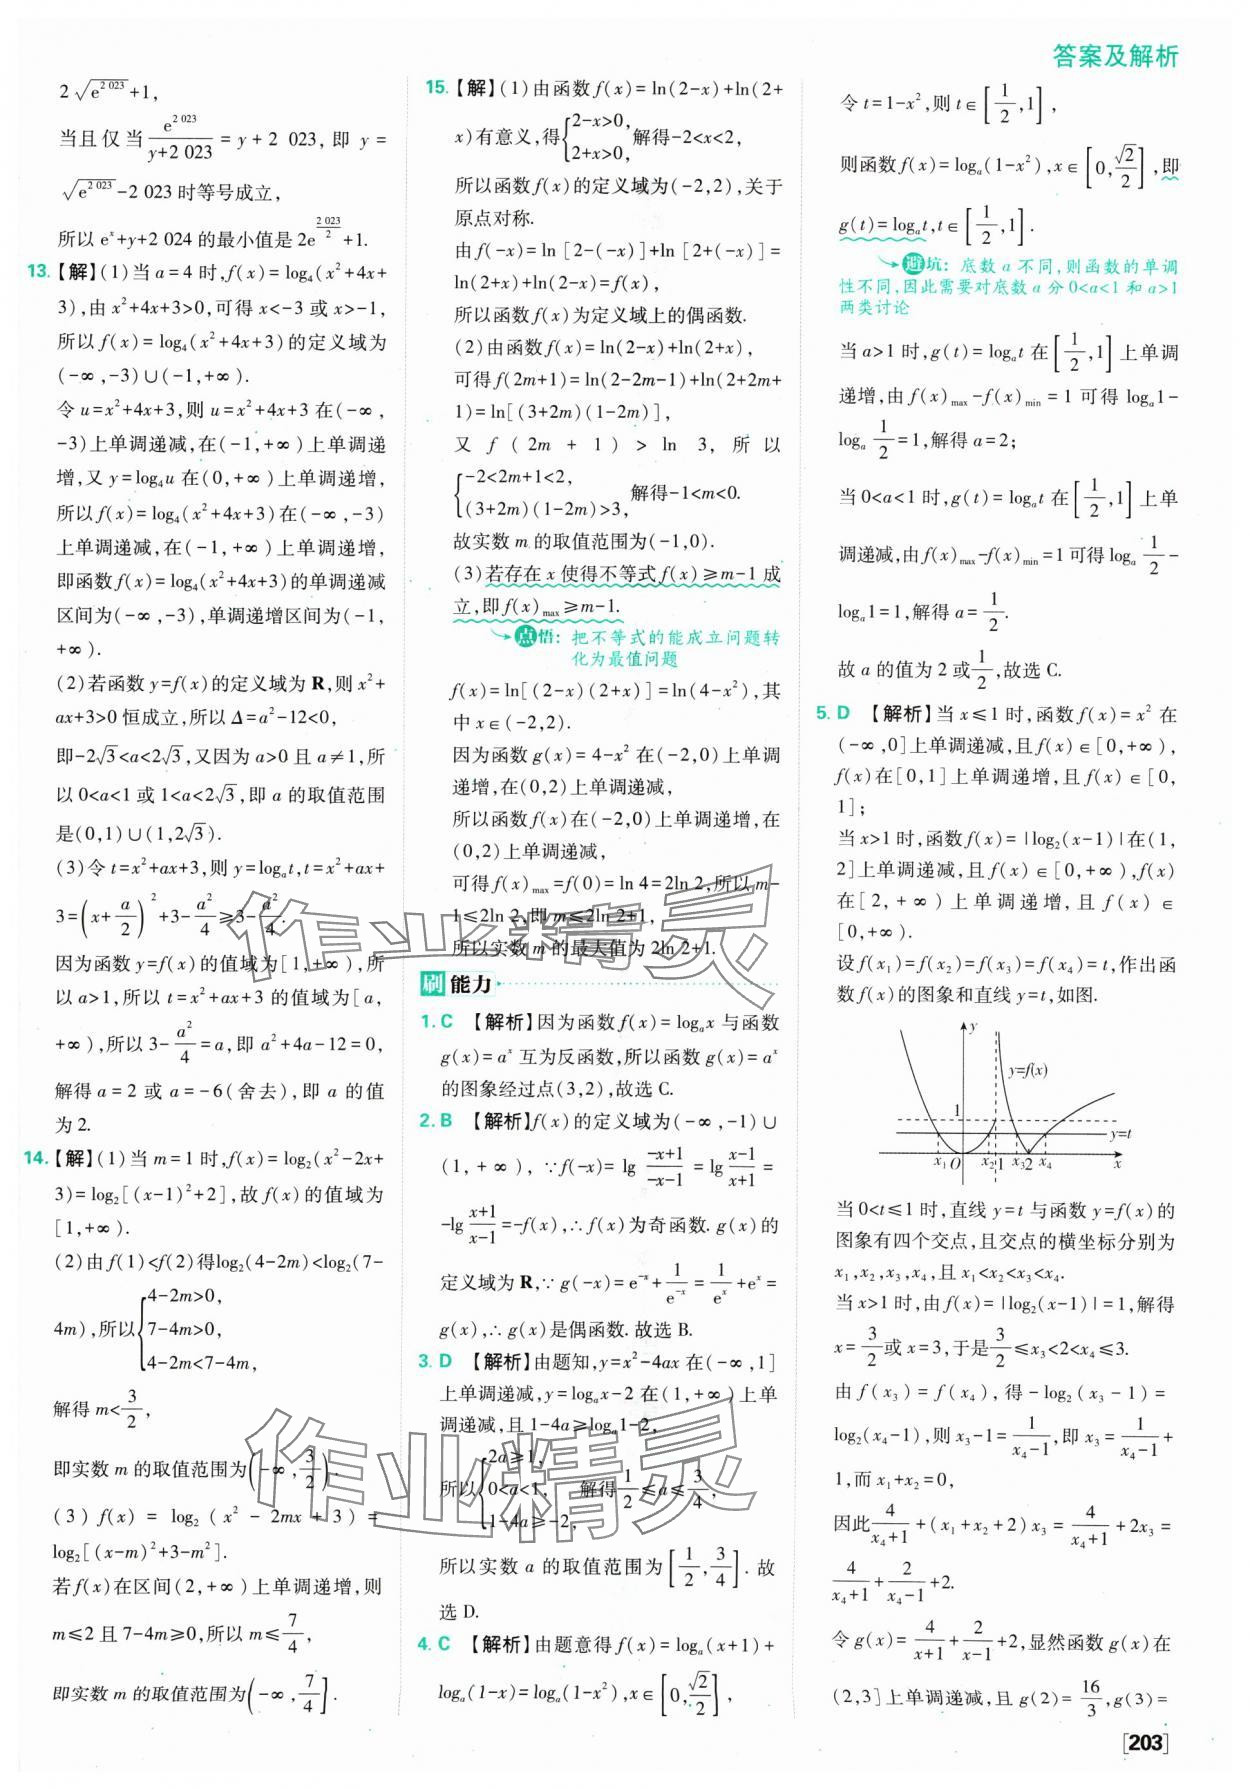 答案及解析
2√(e^2 023)+1,
当且仅当 e^2 023/(y+2 023) = y+2 023, 即 y=
√(e^2 023)-2 023 时等号成立,
所以 e^x+y+2 024 的最小值是 2e^(2 023/2)+1.
13.【解】(1)当 a=4 时,f(x)=log₄(x²+4x+
3),由 x²+4x+3>0,可得 x<-3 或 x>-1,
所以 f(x)=log₄(x²+4x+3)的定义域为
(-∞,-3)∪(-1,+∞).
令 u=x²+4x+3,则 u=x²+4x+3 在(-∞,
-3)上单调递减,在(-1,+∞)上单调递
增,又 y=log₄u 在(0,+∞)上单调递增,
所以 f(x)=log₄(x²+4x+3)在(-∞,-3)
上单调递减,在(-1,+∞)上单调递增,
即函数 f(x)=log₄(x²+4x+3)的单调递减
区间为(-∞,-3),单调递增区间为(-1,
+∞).
(2)若函数 y=f(x)的定义域为 R,则 x²+
ax+3>0 恒成立,所以 Δ=a²-12<0,
即-2√3<a<2√3,又因为 a>0 且 a≠1,所
以 0<a<1 或 1<a<2√3,即 a 的取值范围
是(0,1)∪(1,2√3).
(3)令 t=x²+ax+3,则 y=logₐt,t=x²+ax+
3=(x+a/2)²+3-a²/4≥3-a²/4.
因为函数 y=f(x)的值域为[1,+∞),所
以 a>1,所以 t=x²+ax+3 的值域为[a,
+∞),所以 3-a²/4=a,即 a²+4a-12=0,
解得 a=2 或 a=-6(舍去),即 a 的值
为 2.
14.【解】(1)当 m=1 时,f(x)=log₂(x²-2x+
3)=log₂[(x-1)²+2],故 f(x)的值域为
[1,+∞).
(2)由 f(1)<f(2)得log₂(4-2m)<log₂(7-
4m),所以{4-2m>0,
7-4m>0,
4-2m<7-4m,
解得 m<3/2,
即实数 m 的取值范围为(-∞,3/2).
(3) f(x) = log₂(x²-2mx+3)=
log₂[(x-m)²+3-m²].
若 f(x)在区间(2,+∞)上单调递增,则
m≤2 且 7-4m≥0,所以 m≤7/4,
即实数 m 的取值范围为(-∞,7/4].
15.【解】(1)由函数 f(x)=ln(2-x)+ln(2+
x)有意义,得{2-x>0, 2+x>0, 解得-2<x<2,
所以函数 f(x)的定义域为(-2,2),关于
原点对称.
由 f(-x)=ln[2-(-x)]+ln[2+(-x)]=
ln(2+x)+ln(2-x)=f(x),
所以函数 f(x)为定义域上的偶函数.
(2)由函数 f(x)=ln(2-x)+ln(2+x),
可得 f(2m+1)=ln(2-2m-1)+ln(2+2m+
1)=ln[(3+2m)(1-2m)],
又 f(2m+1)>ln 3,所以
{-2<2m+1<2, (3+2m)(1-2m)>3, 解得-1<m<0.
故实数 m 的取值范围为(-1,0).
(3)若存在 x 使得不等式 f(x)≥m-1 成
立,即 f(x)max≥m-1.
点悟:把不等式的能成立问题转
化为最值问题
f(x)=ln[(2-x)(2+x)]=ln(4-x²),其
中 x∈(-2,2).
因为函数 g(x)=4-x² 在(-2,0)上单调
递增,在(0,2)上单调递减,
所以函数 f(x)在(-2,0)上单调递增,在
(0,2)上单调递减,
可得 f(x)max=f(0)=ln 4=2ln 2,所以 m-
1≤2ln 2,即 m≤2ln 2+1,
所以实数 m 的最大值为 2ln 2+1.
刷能力
1. C 【解析】因为函数 f(x)=logₐx 与函数
g(x)=a^x 互为反函数,所以函数 g(x)=a^x
的图象经过点(3,2),故选 C.
2. B 【解析】f(x)的定义域为(-∞,-1)∪
(1,+∞),∵f(-x)=lg (-x+1)/(-x-1)=lg (x-1)/(x+1)=
-lg (x+1)/(x-1)=-f(x),∴f(x)为奇函数.g(x)的
定义域为 R,∵g(-x)=e^-x+1/e^-x=1/e^x+e^x=
g(x),∴g(x)是偶函数.故选 B.
3. D 【解析】由题知,y=x²-4ax 在(-∞,1]
上单调递减,y=logₐx-2 在(1,+∞)上单
调递减,且 1-4a≥logₐ1-2,
所以{2a≥1, 0<a<1, 1-4a≥-2, 解得1/2≤a≤3/4,
所以实数 a 的取值范围为[1/2,3/4].故
选 D.
4. C 【解析】由题意得 f(x)=logₐ(x+1)+
logₐ(1-x)=logₐ(1-x²),x∈[0,√2/2],
令 t=1-x²,则 t∈[1/2,1],
则函数 f(x)=logₐ(1-x²),x∈[0,√2/2],即
g(t)=logₐt,t∈[1/2,1].
避坑:底数 a 不同,则函数的单调
性不同,因此需要对底数 a 分 0<a<1 和 a>1
两类讨论
当 a>1 时,g(t)=logₐt 在[1/2,1]上单调
递增,由 f(x)max-f(x)min=1 可得 logₐ1-
logₐ 1/2=1,解得 a=2;
当 0<a<1 时,g(t)=logₐt 在[1/2,1]上单
调递减,由 f(x)max-f(x)min=1 可得 logₐ 1/2-
logₐ1=1,解得 a=1/2.
故 a 的值为 2 或1/2,故选 C.
5. D 【解析】当 x≤1 时,函数 f(x)=x² 在
(-∞,0]上单调递减,且 f(x)∈[0,+∞),
f(x)在[0,1]上单调递增,且 f(x)∈[0,
1];
当 x>1 时,函数 f(x)=|log₂(x-1)|在(1,
2]上单调递减,且 f(x)∈[0,+∞),f(x)
在[2,+∞)上单调递增,且 f(x)∈
[0,+∞).
设 f(x₁)=f(x₂)=f(x₃)=f(x₄)=t,作出函
数 f(x)的图象和直线 y=t,如图.
y
y=f(x)
1
y=t
x₁ O x₂ 1 x₃ 2 x₄ x
当 0<t≤1 时,直线 y=t 与函数 y=f(x)的
图象有四个交点,且交点的横坐标分别为
x₁,x₂,x₃,x₄,且 x₁<x₂<x₃<x₄.
当 x>1 时,由 f(x)=|log₂(x-1)|=1,解得
x=3/2或 x=3,于是3/2≤x₃<2<x₄≤3.
由 f(x₃)=f(x₄),得-log₂(x₃-1)=
log₂(x₄-1),则 x₃-1=1/(x₄-1),即 x₃=1/(x₄-1)+
1,而 x₁+x₂=0,
因此4/(x₄+1)+(x₁+x₂+2)x₃=4/(x₄+1)+2x₃=
4/(x₄+1)+2/(x₄-1)+2.
令 g(x)=4/(x+1)+2/(x-1)+2,显然函数 g(x)在
(2,3]上单调递减,且 g(2)=16/3,g(3)=
[203]
作业精灵
作业精灵